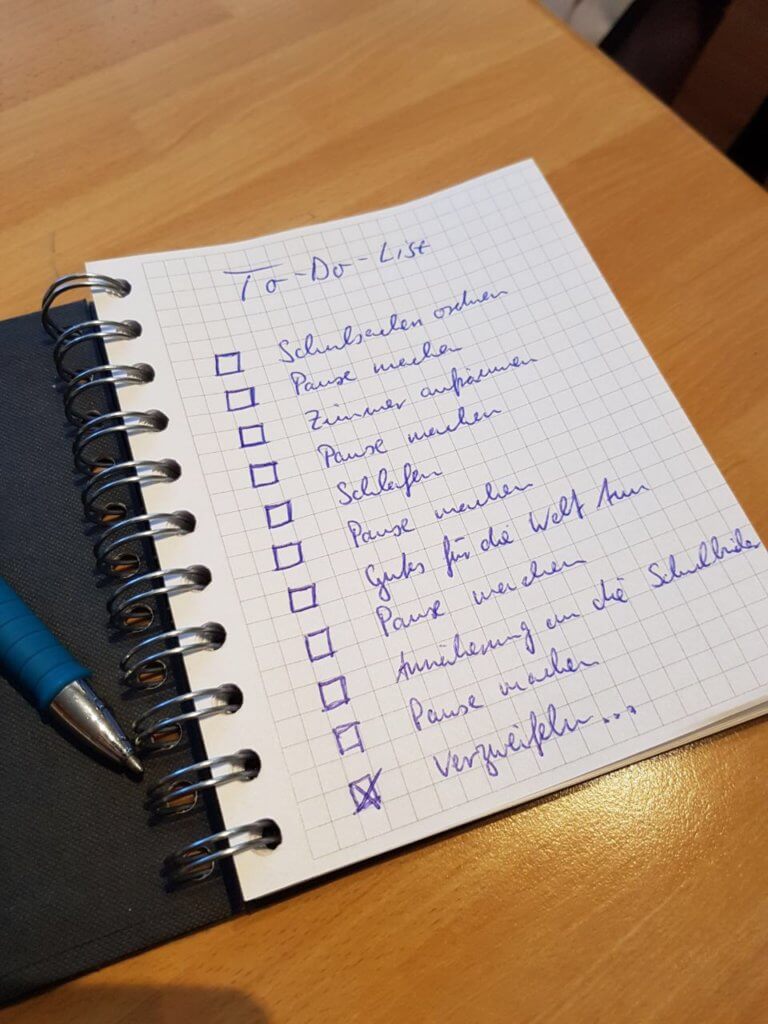 To-Do-List
Schulsachen ordnen
Pause machen
Zimmer aufräumen
Pause machen
Schlafen
Pause machen
Gutes für die Welt tun
Pause machen
Annäherung an die
Pause machen
Verzweifeln...